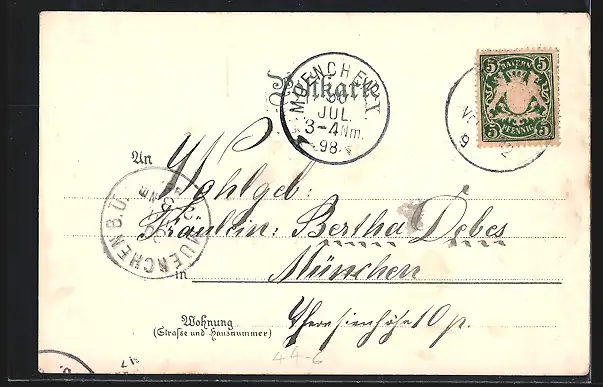 Postkarte
MUENCHEN I.
30
JUL.
3-4 Nm.
98.
5 BAYERN 5
5 PFENNIG 5
An
Wohlgeb:
Fräulein: Bertha Debes
MUENCHEN B.Ü.
in München
Wohnung
(Strasse und Hausnummer)
Theresienhöhe 10 p.
44-6